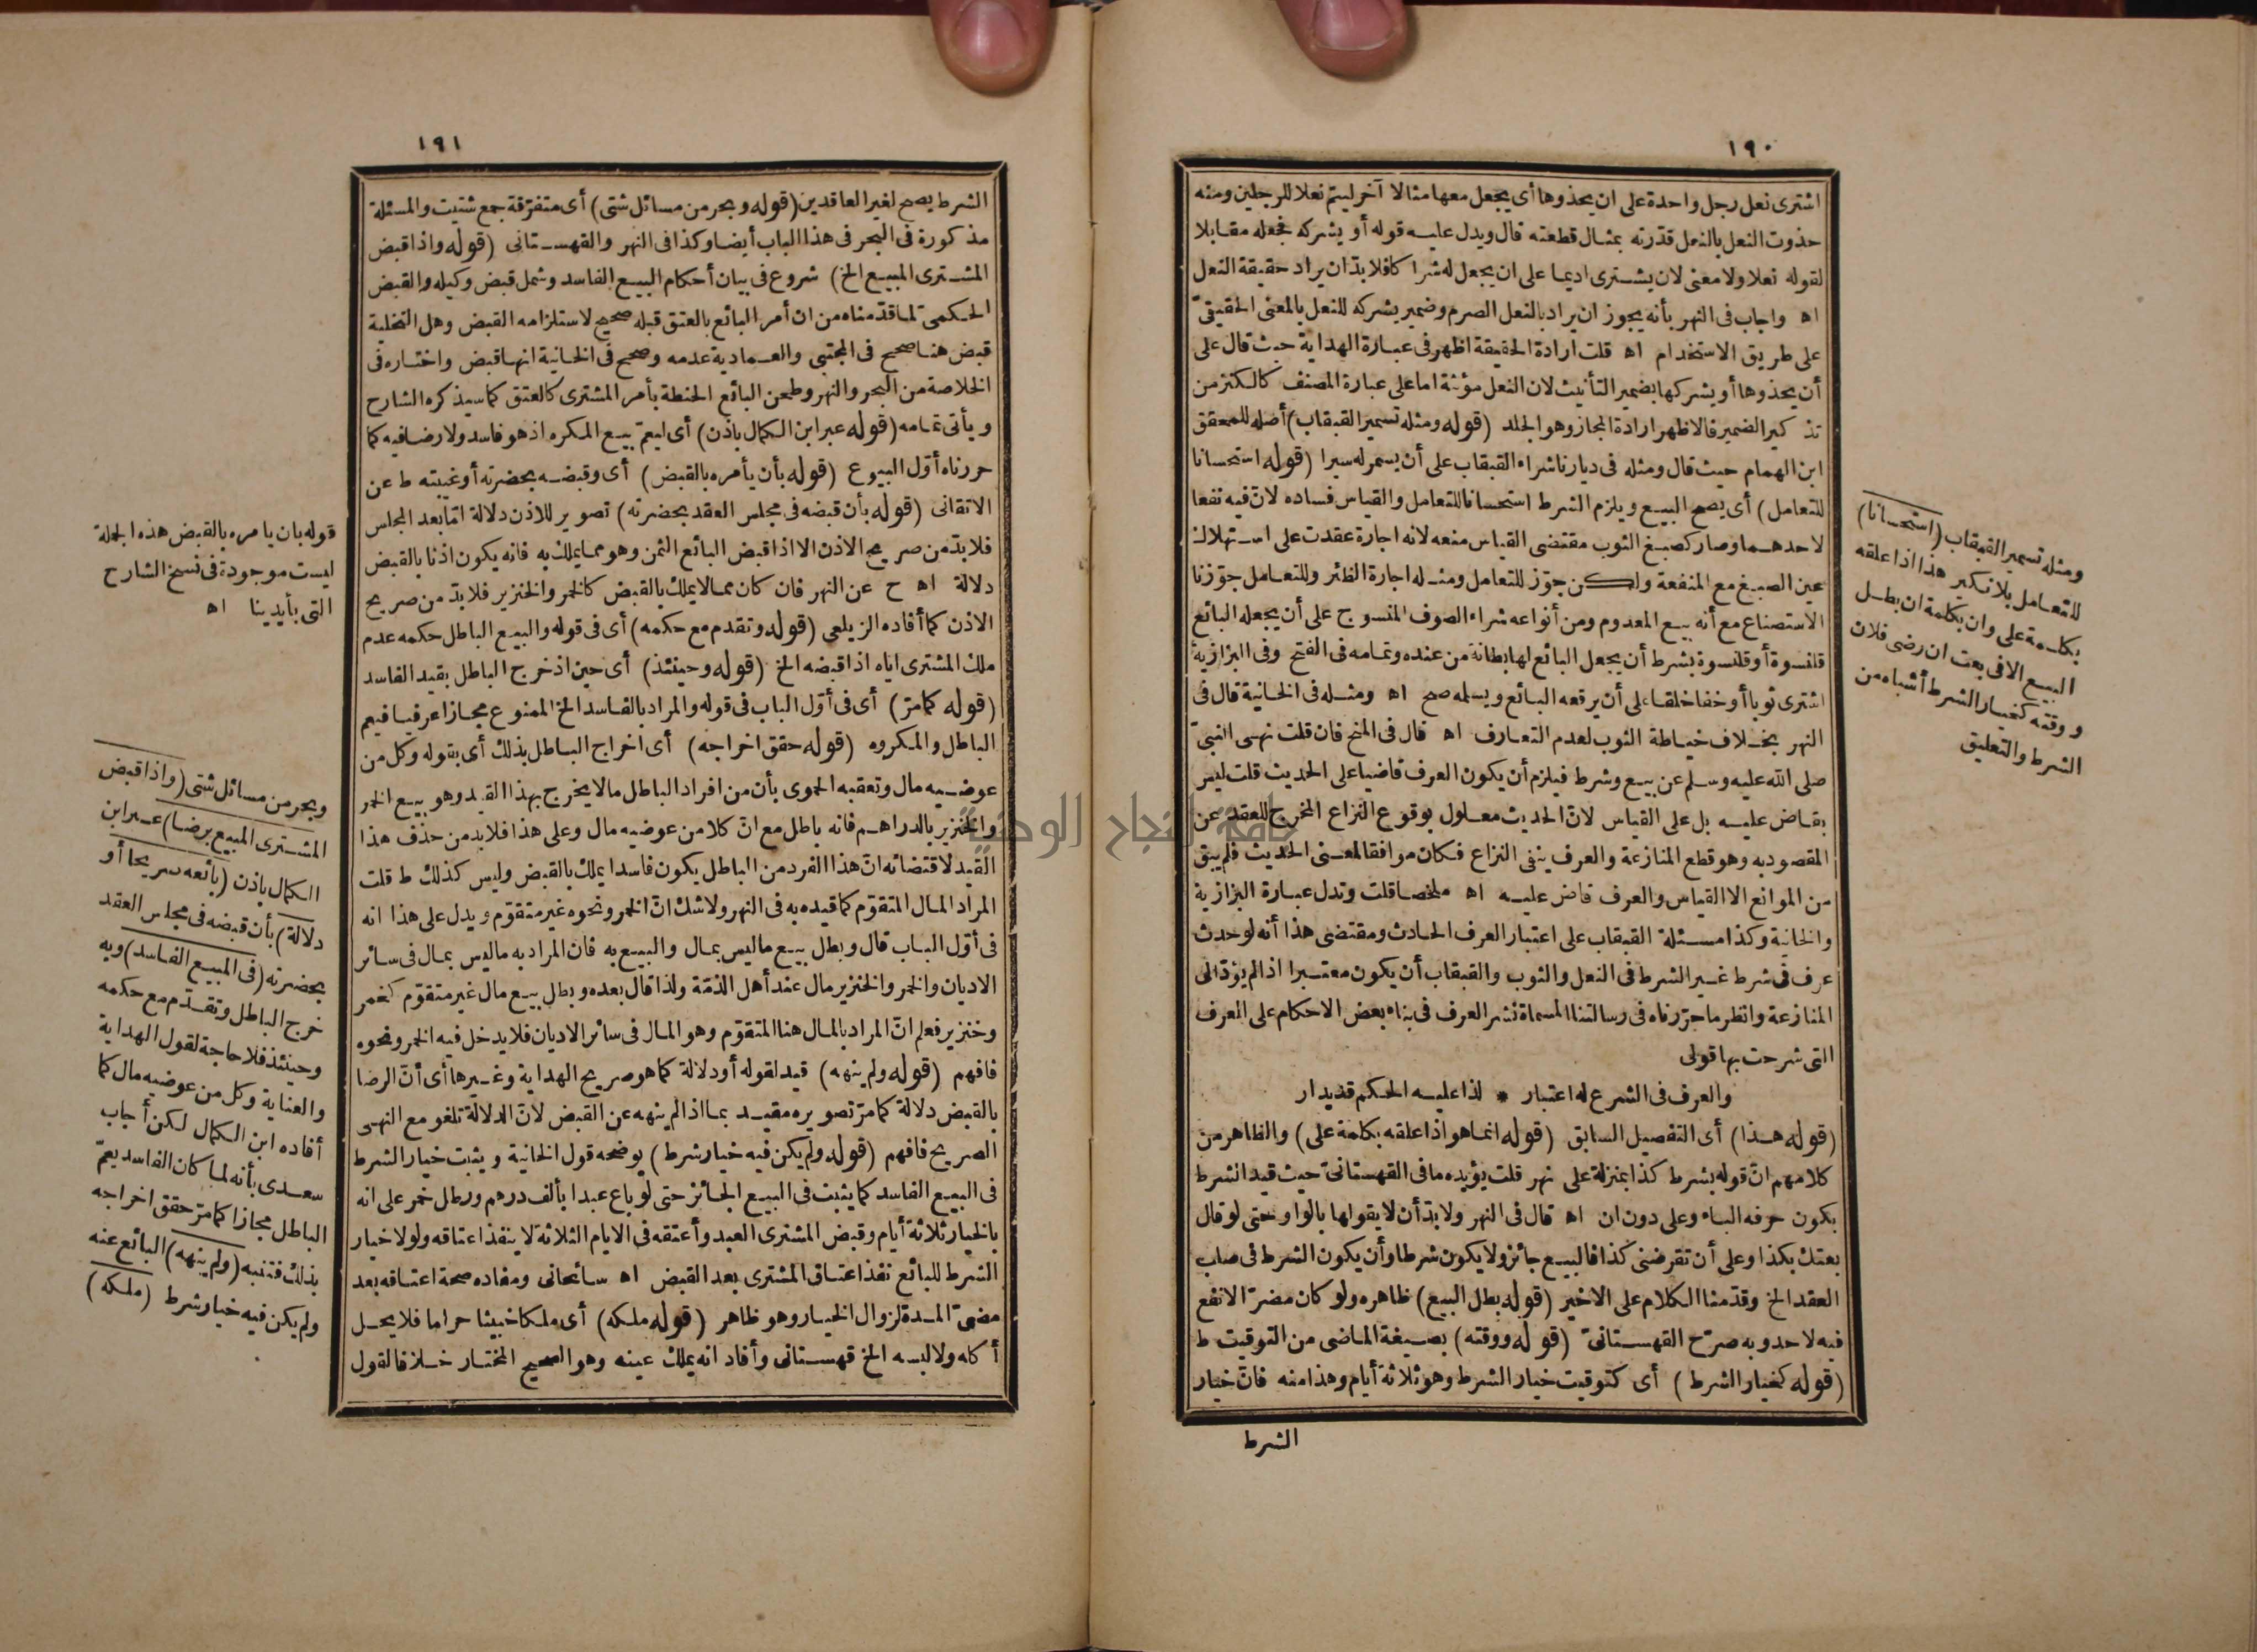 ١٩٠
اشترى نعل رجل واحدة على ان يحذوها أى يجعل معها مثالا آخر ليتم نعلا للرجلين ومنه
حذوت النعل بالنعل قدّرته بمثال قطعته قال ويدل عليه قوله أو يشركه فجعله مقابلا
لقوله نعلا ولا معنى لان يشترى اديما على ان يجعل له شراكا فلا بدّ ان يراد حقيقة النعل
اه واجاب فى النهر بأنه يجوز ان يراد بالنعل الصرم وضمير يشركه للنعل بالمعنى الحقيقىّ
على طريق الاستخدام اه قلت ارادة الحقيقة اظهر فى عبارة الهداية حيث قال على
أن يحذوها أو يشركها بضمير التأنيث لان النعل مؤنثة اما على عبارة المصنف كالكنز من
تذكير الضمير فالاظهر ارادة المجاز وهو الجلد (قوله ومثله تسمير القبقاب) أصله للمحقق
ابن الهمام حيث قال ومثله فى ديارنا شراء القبقاب على أن يسمر له سيرا (قوله استحسانا
للتعامل) أى يصح البيع ويلزم الشرط استحسانا للتعامل والقياس فساده لانّ فيه نفعا
لاحدهما وصار كصبغ الثوب مقتضى القياس منعه لانه اجارة عقدت على استهلاك
عين الصبغ مع المنفعة ولكن جوّز للتعامل ومثله اجارة الظئر وللتعامل جوّزنا
الاستصناع مع أنه بيع المعدوم ومن أنواعه شراء الصوف المنسوج على أن يجعله البائع
قلنسوة أو قلنسوة بشرط أن يجعل البائع لها بطانة من عنده وتمامه فى الفتح وفى البزازية
اشترى ثوبا أو خفا خلقا على أن يرقعه البائع ويسلمه صح اه ومثله فى الخانية قال فى
النهر بخلاف خياطة الثوب لعدم التعارف اه قال فى المنح فان قلت نهى النبىّ
صلى الله عليه وسلم عن بيع وشرط فيلزم أن يكون العرف قاضيا على الحديث قلت ليس
بقاض عليه بل على القياس لانّ الحديث معلول بوقوع النزاع المخرج للعقد عن
المقصود به وهو قطع المنازعة والعرف ينفى النزاع فكان موافقا لمعنى الحديث فلم يبق
من الموانع الا القياس والعرف قاض عليه اه ملخصا قلت وتدل عبارة البزازية
والخانية وكذا مسئلة القبقاب على اعتبار العرف الحادث ومقتضى هذا أنه لو حدث
عرف فى شرط غير الشرط فى النعل والثوب والقبقاب أن يكون معتبرا اذا لم يؤدّ الى
المنازعة وانظر ما حرّرناه فى رسالتنا المسماة نشر العرف فى بناء بعض الاحكام على العرف
التى شرحت بها قولى
والعرف فى الشرع له اعتبار * لذا عليه الحكم قد يدار
(قوله هذا) أى التفصيل السابق (قوله انما هو اذا علقه بكلمة على) والظاهر من
كلامهم انّ قوله بشرط كذا بمنزلة على نهر قلت يؤيده ما فى القهستانىّ حيث قيد الشرط
بكون حرفه الباء وعلى دون ان اه قال فى النهر ولا بدّ أن لا يقولها بالواو حتى لو قال
بعتك بكذا وعلى أن تقرضنى كذا فالبيع جائز ولا يكون شرطا وأن يكون الشرط فى صلب
العقد الخ وقدّمنا الكلام على الاخير (قوله بطل البيع) ظاهره ولو كان مضرّا لا نفع
فيه لاحد وبه صرّح القهستانىّ (قوله ووقته) بصيغة الماضى من التوقيت ط
(قوله كخيار الشرط) أى كتوقيت خيار الشرط وهو ثلاثة أيام وهذا منه فانّ خيار
الشرط
ومثله تسمير القبقاب (استحسانا)
للتعامل بلا نكير هذا اذا علقه
بكلمة على وان بكلمة ان بطل
البيع الا فى بعت ان رضى فلان
ووقته كخيار الشرط أشباه من
الشرط والتعليق
١٩١
الشرط يصح لغير العاقدين (قوله وبحر من مسائل شتى) أى متفرّقة جمع شتيت والمسئلة
مذكورة فى البحر فى هذا الباب أيضا وكذا فى النهر والقهستانى (قوله واذا قبض
المشترى المبيع الخ) شروع فى بيان أحكام البيع الفاسد وشمل قبض وكيله والقبض
الحكمى لما قدّمناه من ان أمر البائع بالعتق قبله صحيح لاستلزامه القبض وهل التخلية
قبض هنا صحح فى المجتبى والعمادية عدمه وصحح فى الخانية انها قبض واختاره فى
الخلاصة من البحر والنهر وطحن البائع الحنطة بأمر المشترى كالعتق كما سيذكره الشارح
ويأتى تمامه (قوله عبر ابن الكمال باذن) أى ليعمّ بيع المكره اذ هو فاسد ولا رضا فيه كما
حررناه أوّل البيوع (قوله بأن يأمره بالقبض) أى وقبضه بحضرته أو غيبته ط عن
الاتقانى (قوله بأن قبضه فى مجلس العقد بحضرته) تصوير للاذن دلالة امّا بعد المجلس
فلا بدّ من صريح الاذن الا اذا قبض البائع الثمن وهو مما يملك به فانه يكون اذنا بالقبض
دلالة اه ح عن النهر فان كان مما لا يملك بالقبض كالخمر والخنزير فلا بدّ من صريح
الاذن كما أفاده الزيلعى (قوله وتقدم مع حكمه) أى فى قوله والبيع الباطل حكمه عدم
ملك المشترى اياه اذا قبضه الخ (قوله وحينئذ) أى حين اذ خرج الباطل بقيد الفاسد
(قوله كما مرّ) أى فى أوّل الباب فى قوله والمراد بالفاسد الخ الممنوع مجازا عرفيا فيعم
الباطل والمكروه (قوله حقق اخراجه) أى اخراج الباطل بذلك أى بقوله وكل من
عوضيه مال وتعقبه الحموى بأن من افراد الباطل ما لا يخرج بهذا القيد وهو بيع الخمر
والخنزير بالدراهم فانه باطل مع انّ كلا من عوضيه مال وعلى هذا فلا بد من حذف هذا
القيد لاقتضائه انّ هذا الفرد من الباطل يكون فاسدا يملك بالقبض وليس كذلك ط قلت
المراد المال المتقوّم كما قيده به فى النهر ولا شك انّ الخمر ونحوه غير متقوّم ويدل على هذا انه
فى أوّل الباب قال وبطل بيع ما ليس بمال والبيع به فان المراد به ما ليس بمال فى سائر
الاديان والخمر والخنزير مال عند أهل الذمّة ولذا قال بعده وبطل بيع مال غير متقوّم كخمر
وخنزير فعلم انّ المراد بالمال هنا المتقوّم وهو المال فى سائر الاديان فلا يدخل فيه الخمر ونحوه
فافهم (قوله ولم ينهه) قيد لقوله أو دلالة كما هو صريح الهداية وغيرها أى أنّ الرضا
بالقبض دلالة كما مرّ تصويره مقيد بما اذا لم ينهه عن القبض لانّ الدلالة تلغو مع النهى
الصريح فافهم (قوله ولم يكن فيه خيار شرط) يوضحه قول الخانية ويثبت خيار الشرط
فى البيع الفاسد كما يثبت فى البيع الجائز حتى لو باع عبدا بألف درهم ورطل خمر على انه
بالخيار ثلاثة أيام وقبض المشترى العبد وأعتقه فى الايام الثلاثة لا ينفذ اعتاقه ولولا خيار
الشرط للبائع نفذ اعتاق المشترى بعد القبض اه سائحانى ومفاده صحة اعتاقه بعد
مضىّ المدة لزوال الخيار وهو ظاهر (قوله ملكه) أى ملكا خبيثا حراما فلا يحل
أكله ولا لبسه الخ قهستانى وأفاد انه يملك عينه وهو الصحيح المختار خلافا لقول
قوله بان يامره بالقبض هذه الجملة
ليست موجودة فى نسخ الشارح
التى بأيدينا اه
وبحر من مسائل شتى (واذا قبض
المشترى المبيع برضا) عبر ابن
الكمال باذن (بائعه صريحا أو
دلالة) بأن قبضه فى مجلس العقد
بحضرته (فى البيع الفاسد) وبه
خرج الباطل وتقدّم مع حكمه
وحينئذ فلا حاجة لقول الهداية
والعناية وكل من عوضيه مال كما
أفاده ابن الكمال لكن أجاب
سعدى بأنه لما كان الفاسد يعمّ
الباطل مجازا كما مرّ حقق اخراجه
بذلك فتنبه (ولم ينهه) البائع عنه
ولم يكن فيه خيار شرط (ملكه)
جامعة النجاح الوطنية